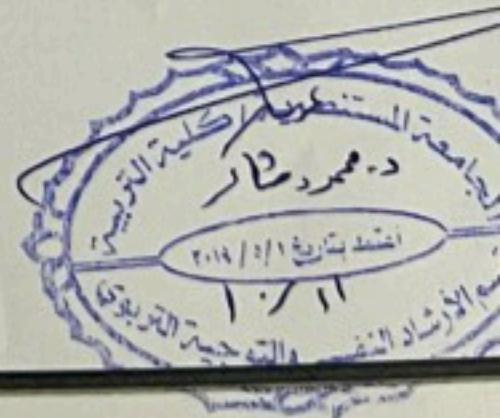 الجامعة المستنصرية / كلية التربية
د. محمود شاكر
اعتمد بتاريخ ٢٠١٩/٥/١
١٠/١١
قسم الارشاد النفسي والتوجيه التربوي